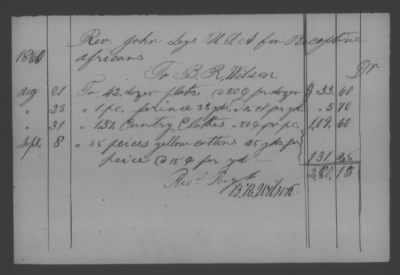 Rev John Seys U.S.A for Recaptive
1860 Africans
To B. R. Wilson Dr
Aug 21 To 42 dozen plates @ 80¢ pr dozen $ 33.60
" 25 " 1 pc. prince 38 yds pr yd 5 70
" 31 " Country Clothes 80¢ pr pc. 109.60
Sept. 8 " 35 peices yellow cotton 25 yds pr
peice @ 15¢ pr yd 131 25
280.15
Recd Payt
B. R. Wilson